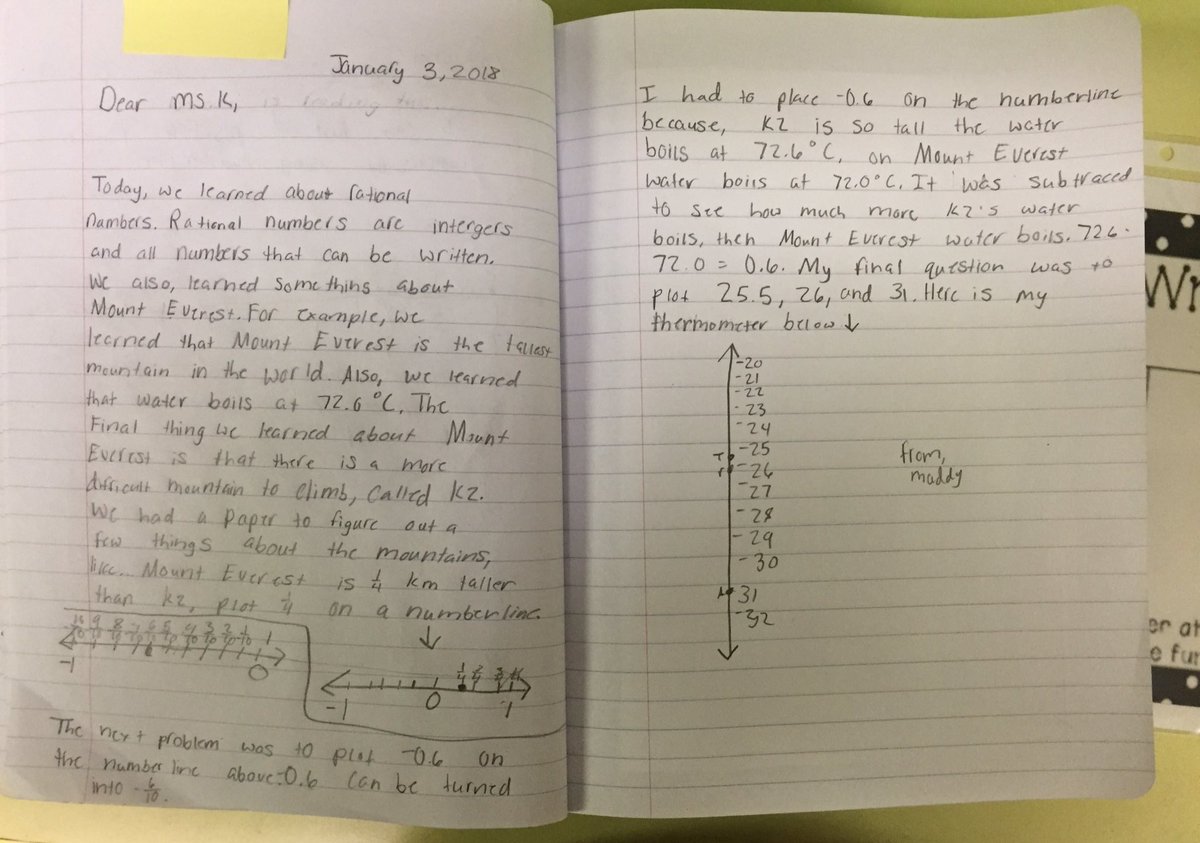 January 3, 2018
Dear Ms. K,
Today, we learned about rational
numbers. Rational numbers are intergers
and all numbers that can be written.
We also, learned some things about
Mount Everest. For example, we
learned that Mount Everest is the tallest
mountain in the world. Also, we learned
that water boils at 72.6°C. The
Final thing we learned about Mount
Everest is that there is a more
difficult mountain to climb, called K2.
We had a paper to figure out a
few things about the mountains,
like... Mount Everest is 1/4 km taller
than K2, plot 1/4 on a numberline.
↓
10/10 9/10 8/10 7/10 6/10 5/10 4/10 3/10 2/10 1/10
-1 0
1/4 2/4 3/4 4/4
-1 0 1
The next problem was to plot -0.6 on
the number line above. -0.6 can be turned
into -6/10.
I had to place -0.6 on the numberline
because, K2 is so tall the water
boils at 72.6°C, on Mount Everest
water boils at 72.0°C. It was subtraced
to see how much more K2's water
boils, then Mount Everest water boils. 72.6-
72.0 = 0.6. My final question was to
plot 25.5, 26, and 31. Here is my
thermometer below ↓
-20
-21
-22
-23
-24
-25
-26
-27
-28
-29
-30
31
-32
from,
maddy
Wr
er at
e fur